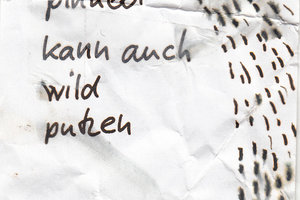 kann auch
wild
putzen